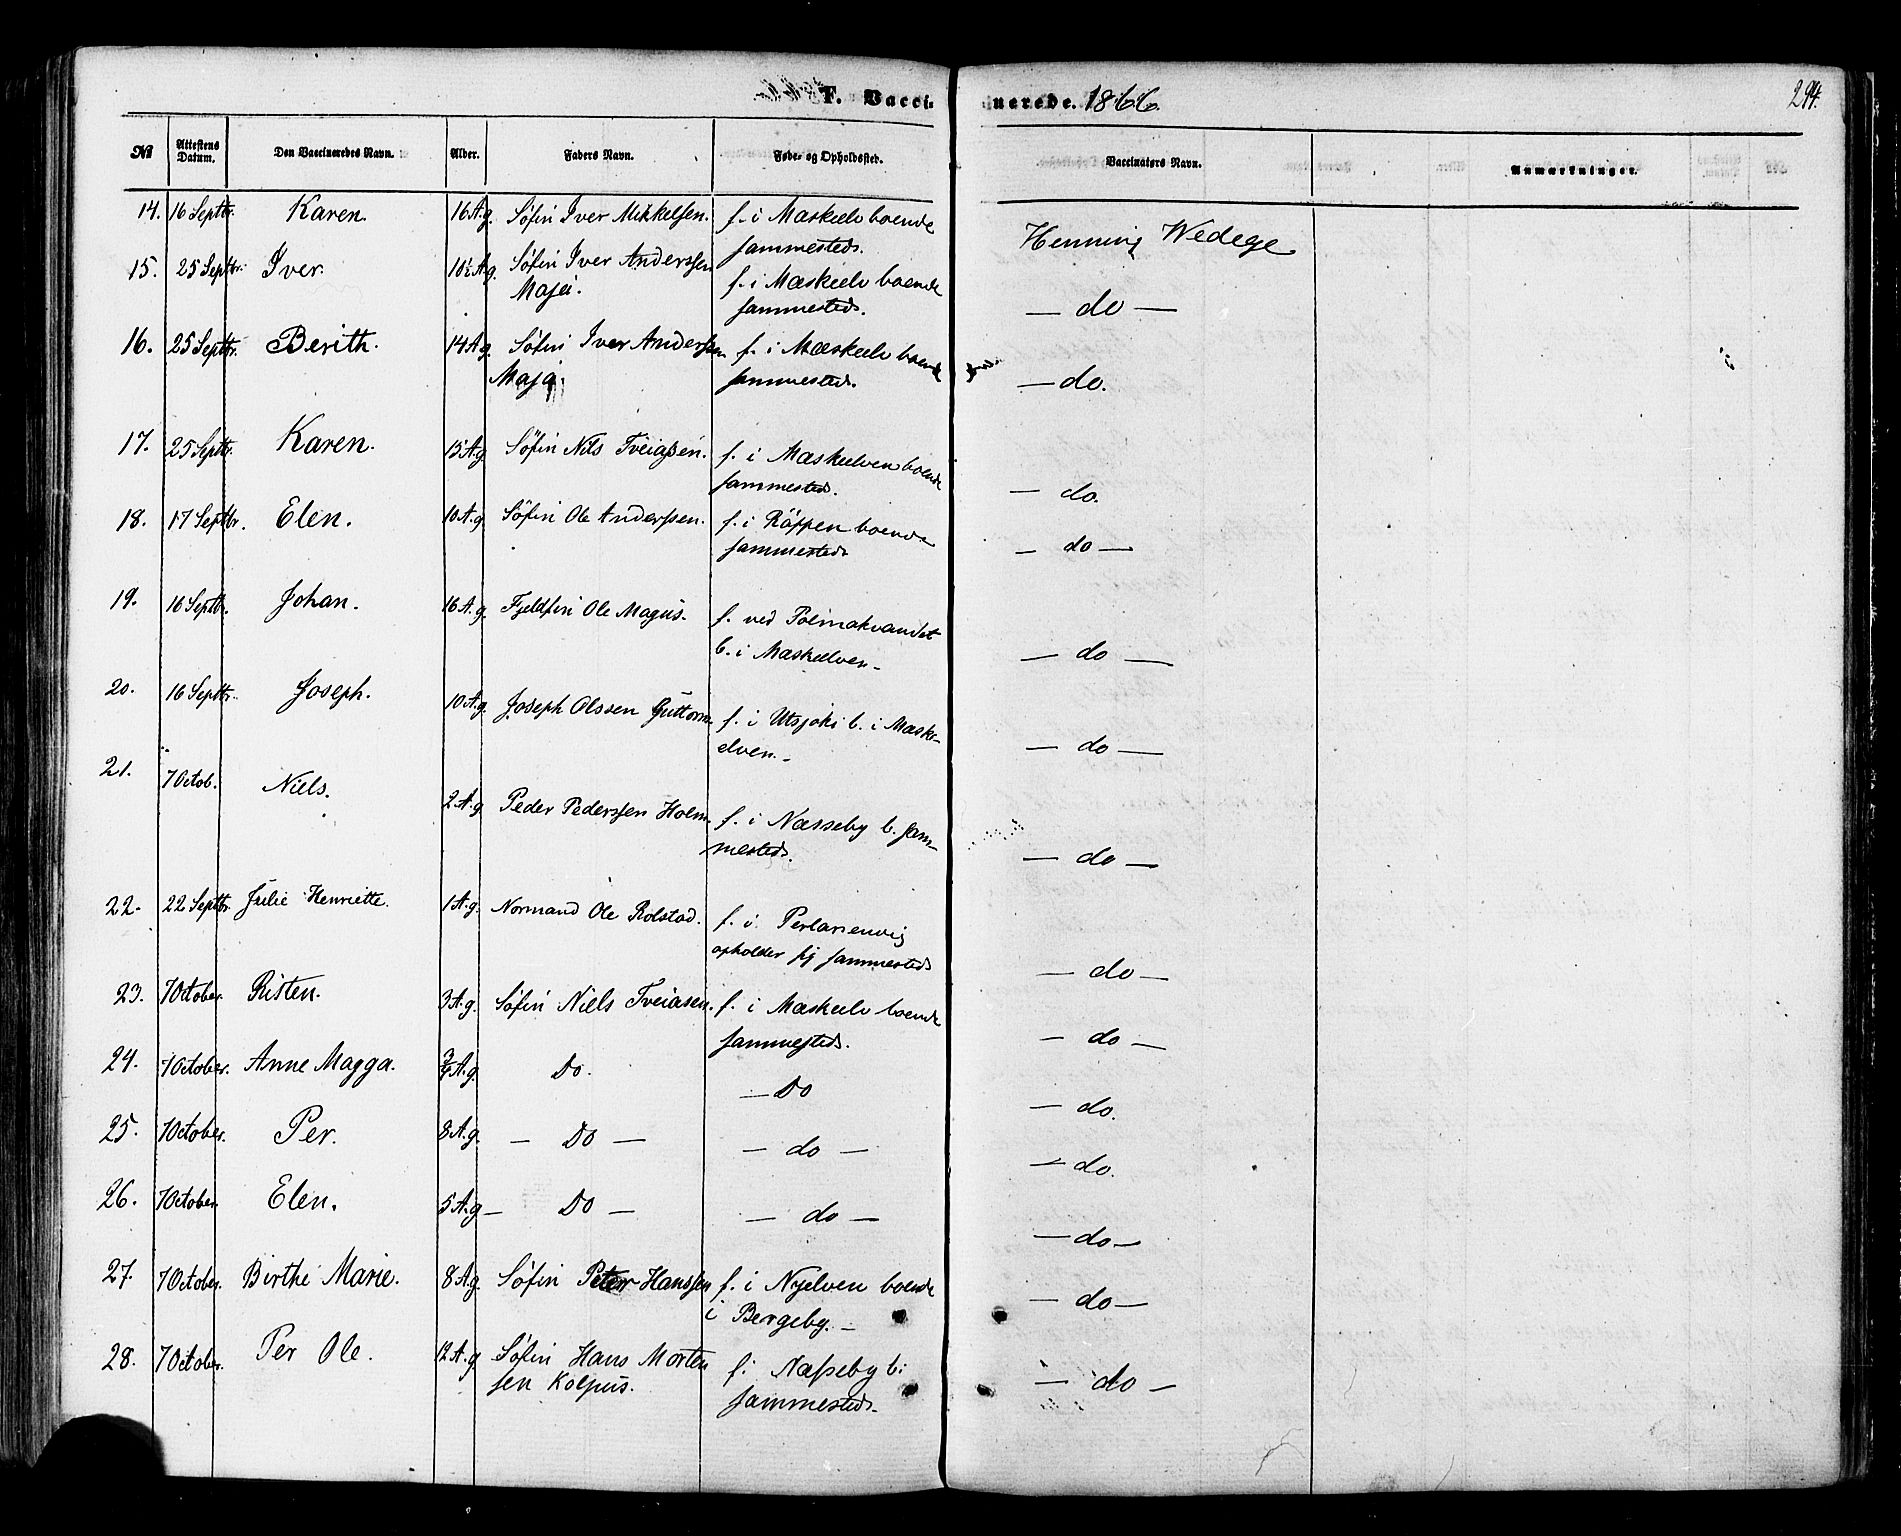 F. Vacci-
nerede. 1866.
294.
No Attestens Datum. Den Vaccineredes Navn. Alder. Faders Navn. Føde- og Opholdssted. Vaccinatørs Navn. Anmærkninger.
14. 16 Septbr. Karen. 16 A. g. Søfin Iver Mikkelsen. f. i Mæskelv boende Henning Wedege
sammesteds.
15. 25 Septbr. Iver. 10½ A. g. Søfin Iver Anderssen f. i Mæskelv boende — do —
Maja. sammesteds.
16. 25 Septbr. Berith. 14 A. g. Søfin Iver Anderssen f. i Mæskelv boende — do.
Maja. sammesteds.
17. 25 Septbr. Karen. 15 A. g. Søfin Nils Tveiassen. f. i Mæskelven boende — do.
sammesteds.
18. 17 Septbr. Elen. 10 A. g. Søfin Ole Anderssen. f. i Röppen boende — do —
sammesteds
19. 16 Septbr. Johan. 16 A. g. Fjeldfin Ole Magus. f. ved Polmakvandet — do —
b. i Mæskelven.
20. 16 Septbr. Joseph. 10 A. g. Joseph Olssen Guttorm. f. i Utsjoki b. i Mæsk- — do —
elven.
21. 7 Octob. Niels. 2 A. g. Peder Pederssen Holm. f. i Næsseby b. sam- — do —
mesteds.
22. 22 Septbr. Julie Henriette. 1 A. g. Normand Ole Rolstad. f. i Perlarsenvig — do —
opholder sig sammesteds
23. 7 October. Risten. 3 A. g. Søfin Niels Tveiasen. f. i Mæskelv boende — do —
sammesteds.
24. 7 October. Anne Magga. ¾ A. g. Do. — Do — do.
25. 7 October. Per. 8 A. g. — Do — — do — — do.
26. 7 October. Elen. 5 A. g. — Do — — do — — do —
27. 7 October. Birthe Marie. 8 A. g. Søfin Peter Hanssen f. i Nyelven boende — do —
i Bergeby.
28. 7 October. Per Ole. 12 A. g. Søfin Hans Morten f. Næsseby b. — do —
sen Kolpus. sammesteds.